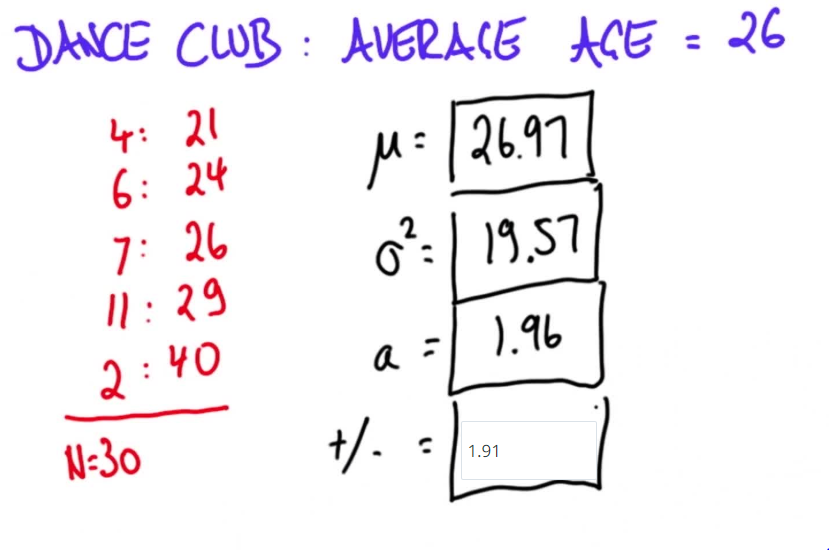 DANCE CLUB : AVERAGE AGE = 26
4: 21
6: 24
7: 26
11: 29
2: 40
N=30
μ= 26.97
σ²= 19.57
a = 1.96
+/- = 1.91